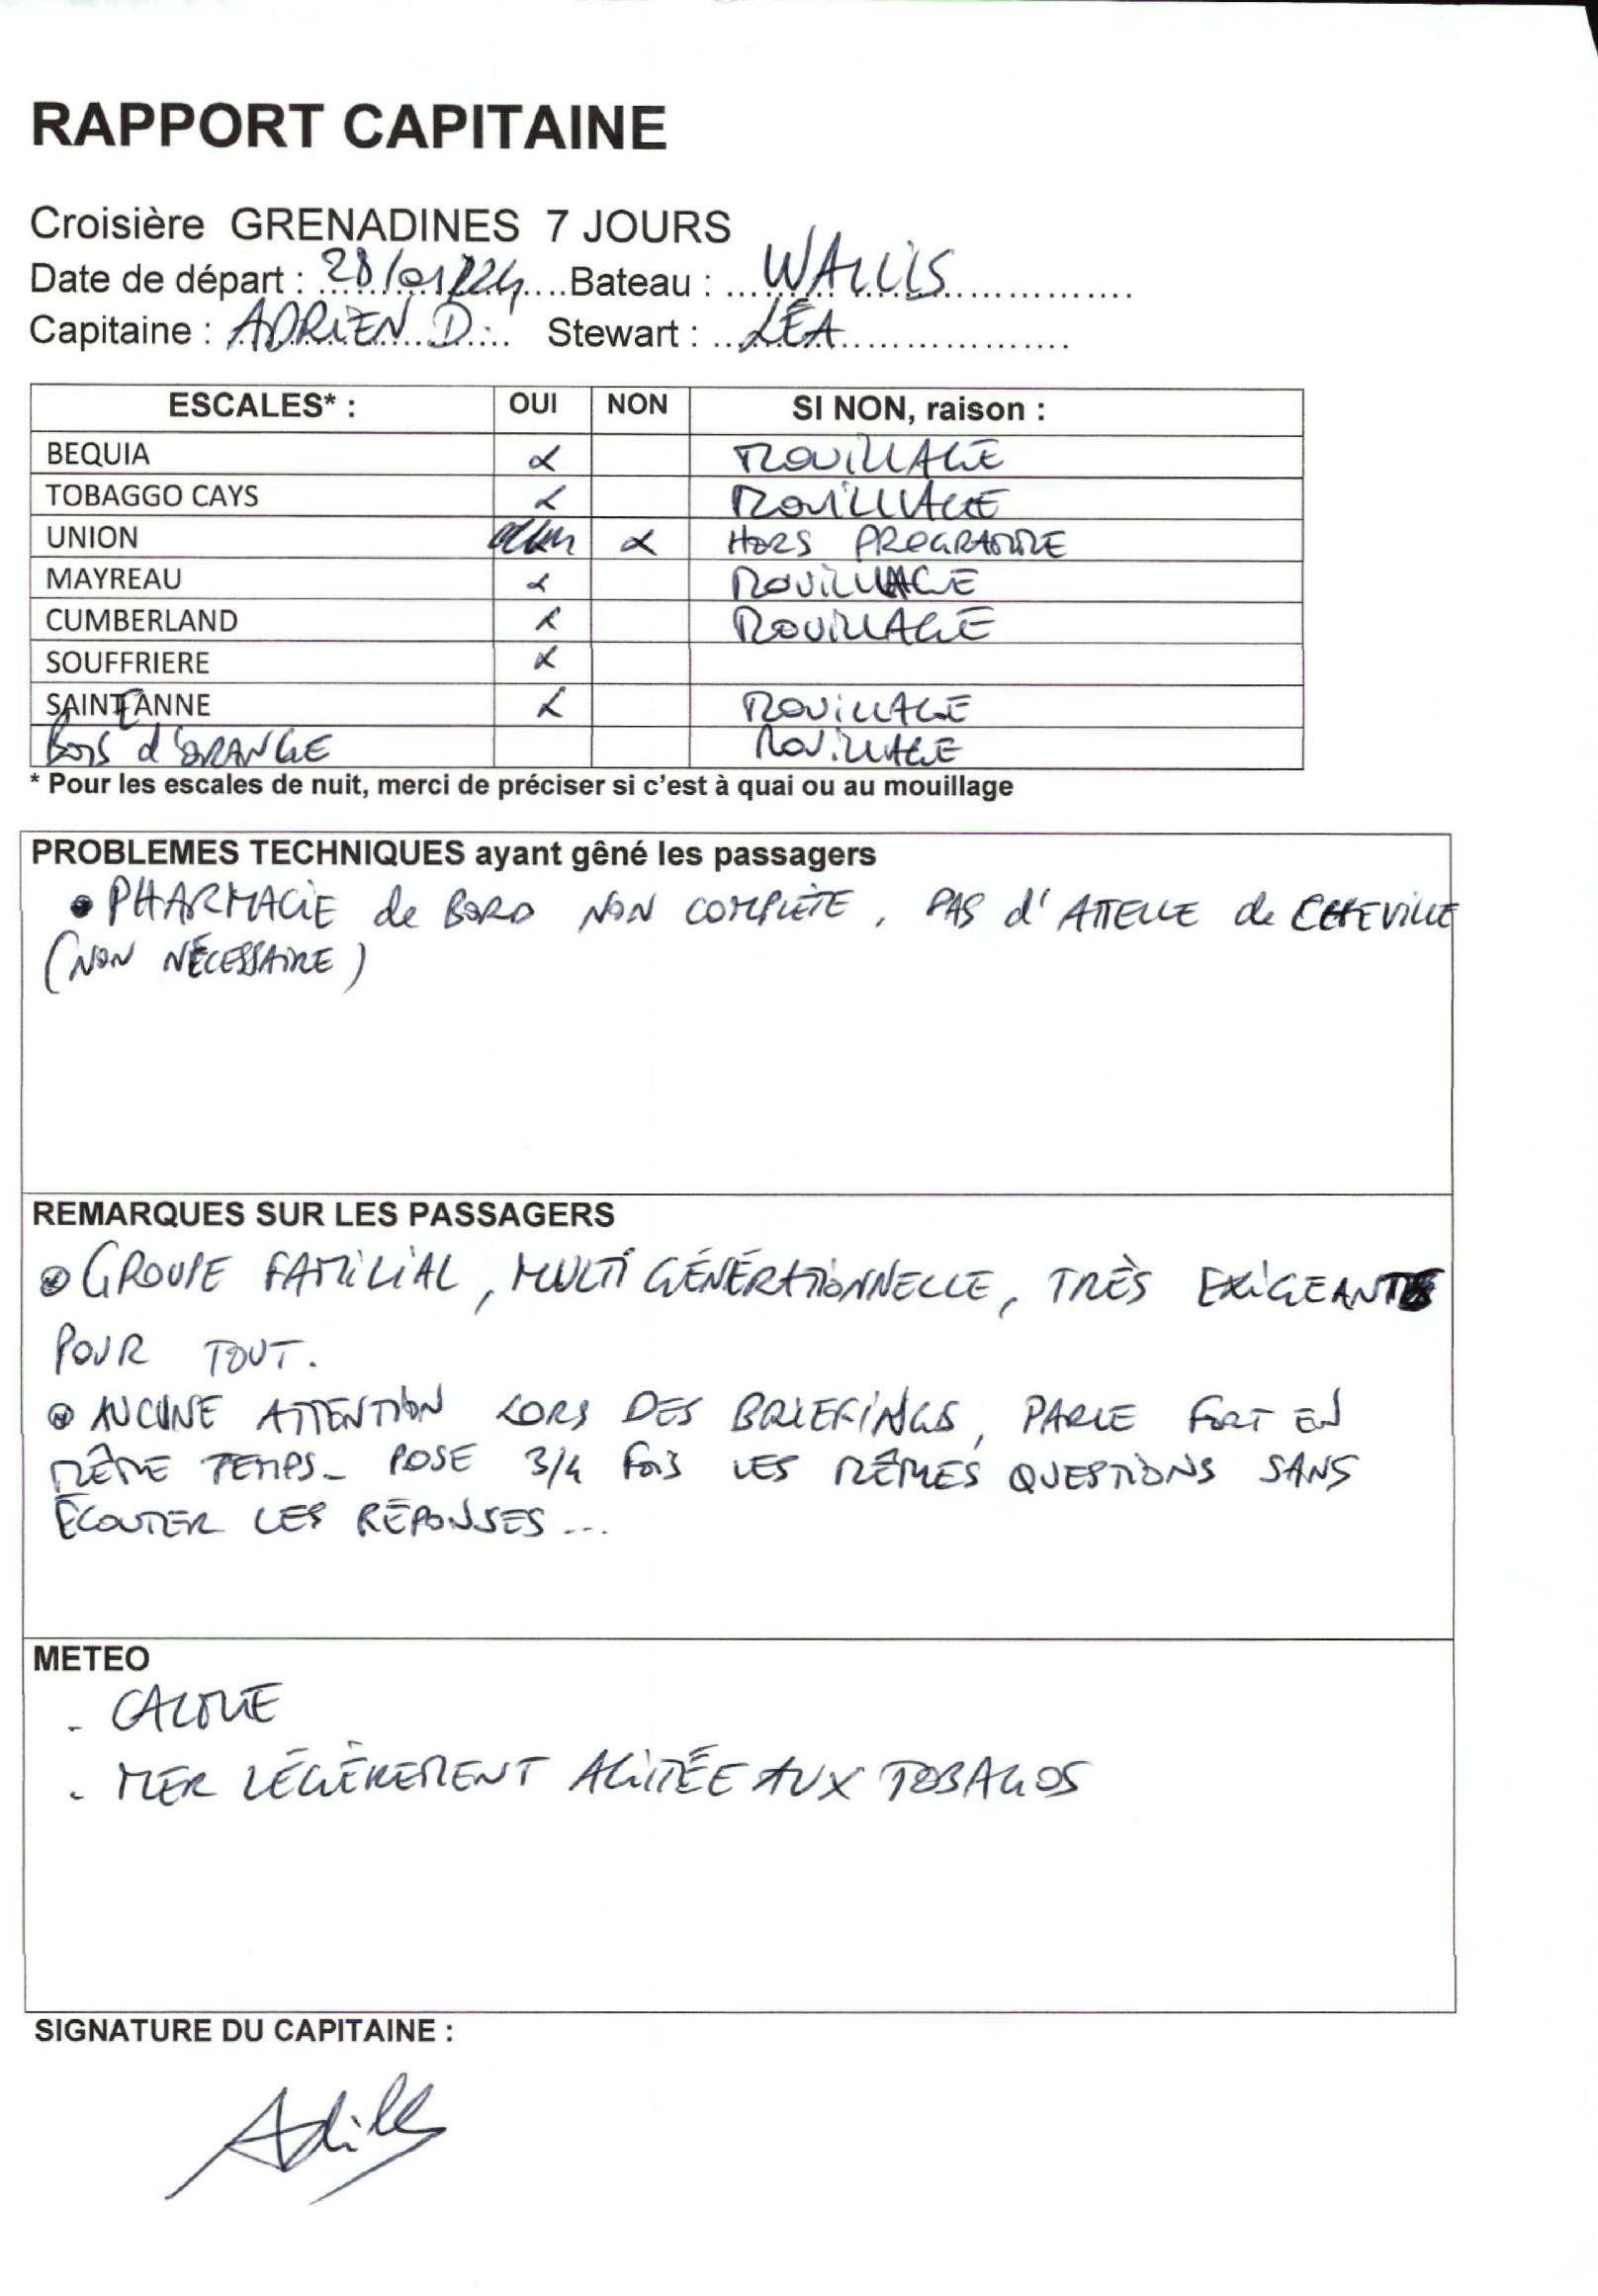 RAPPORT CAPITAINE
Croisière GRENADINES 7 JOURS
Date de départ : 28/01/24 Bateau : WALLIS
Capitaine : ADRIEN D. Stewart : LÉA
ESCALES* : OUI NON SI NON, raison :
BEQUIA x MOUILLAGE
TOBAGGO CAYS x MOUILLAGE
UNION x HORS PROGRAMME
MAYREAU x MOUILLAGE
CUMBERLAND x MOUILLAGE
SOUFFRIERE x
SAINTE ANNE x MOUILLAGE
BOIS d'ORANGE MOUILLAGE
* Pour les escales de nuit, merci de préciser si c'est à quai ou au mouillage
PROBLEMES TECHNIQUES ayant gêné les passagers
• PHARMACIE de BORD NON COMPLÈTE, PAS d'ATTELLE de CHEVILLE
(NON NÉCESSAIRE)
REMARQUES SUR LES PASSAGERS
• GROUPE FAMILIAL, MULTI GÉNÉRATIONNELLE, TRÈS EXIGEANT
POUR TOUT.
• AUCUNE ATTENTION LORS DES BRIEFINGS, PARLE FORT EN
MÊME TEMPS_ POSE 3/4 FOIS LES MÊMES QUESTIONS SANS
ÉCOUTER LES RÉPONSES...
METEO
- CALME
- MER LÉGÈREMENT AGITÉE AUX TOBAGOS
SIGNATURE DU CAPITAINE :